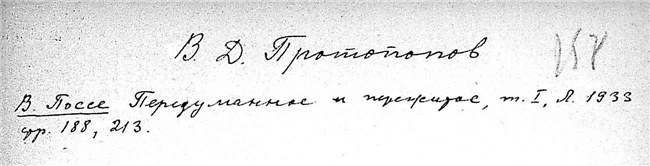 В. Д. Протопопов
В. Поссе Передуманное и пережитое, т. I, Л. 1933
стр. 188, 213.